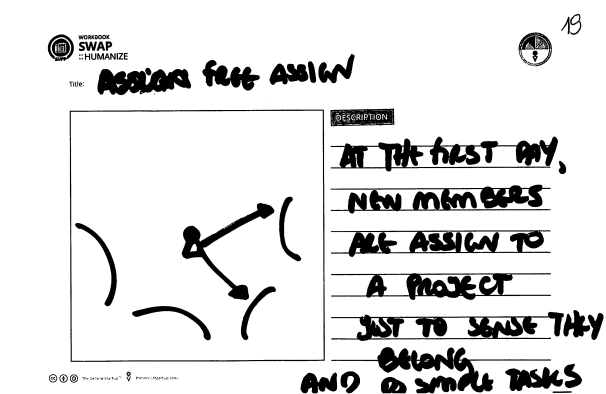 19
WORKBOOK
SWAP
::HUMANIZE
Title: FREE ASSIGN
DESCRIPTION
AT THE FIRST DAY,
NEW MEMBERS
ARE ASSIGN TO
A PROJECT
JUST TO SENSE THEY
BELONG
AND DO SIMPLE TASKS